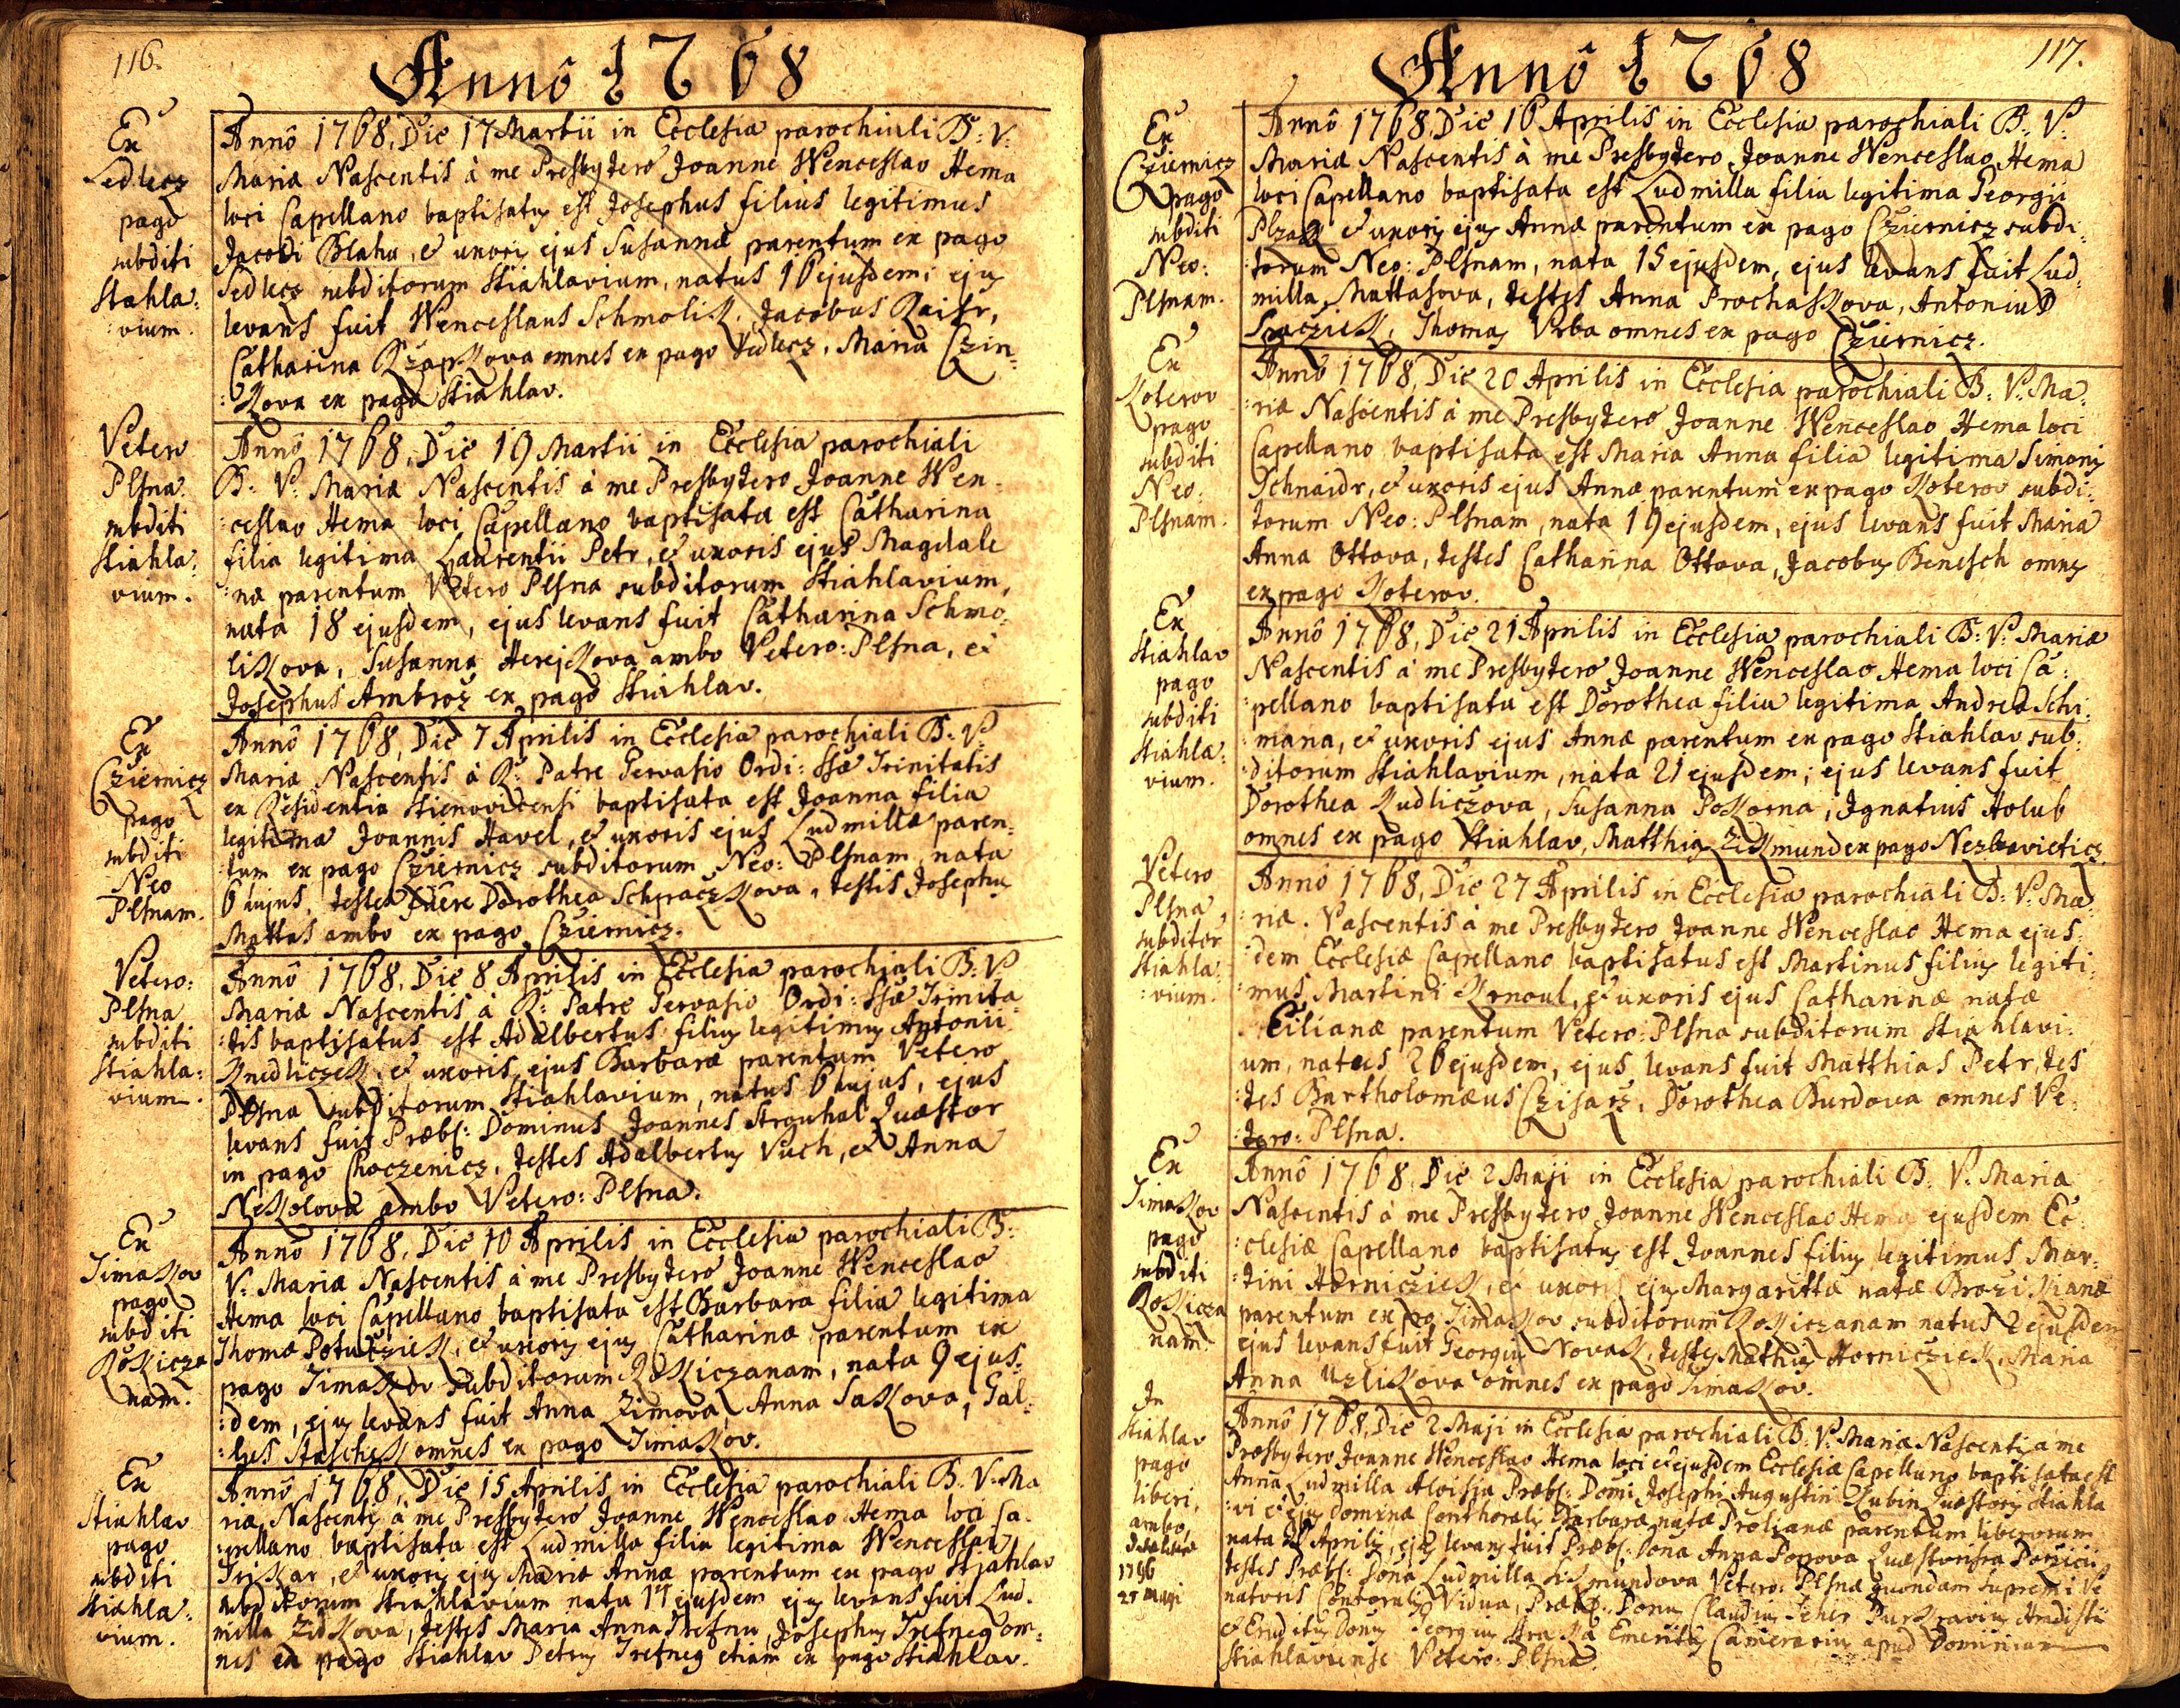 116.
Annô 1768
Ex
Sedlecz
pago
subditi
Stiahla:
:vium.
Annô 1768, Die 17 Martii in Ecclesia parochiali B: V:
Mariæ Nascentis à me Presbytero Joanne Wenceslao Hema
loci Capellano baptisatus est Josephus filius legitimus
Jacobi Blaha, et uxoris ejus Susannæ parentum ex pago
Sedlecz subditorum Stiahlavium, natus 16 ejusdem; ejus
levans fuit Wenceslaus Schmolik, Jacobus Kaisr,
Catharina Rzapkova omnes ex pago Sedlecz, Maria Czin:
:kova ex pago Stiahlav.
Vetero
Plsna.
subditi
Stiahla:
vium.
Annô 1768, Die 19 Martii in Ecclesia parochiali
B: V: Mariæ Nascentis à me Presbytero Joanne Wen:
:ceslao Hema loci Capellano baptisata est Catharina
filia legitima Laurentii Petr, et uxoris ejus Magdale
:næ parentum Vetero Plsna subditorum Stiahlavium,
nata 18 ejusdem, ejus levans fuit Catharina Schmo:
likova, Susanna Herejkova ambo Vetero: Plsna, et
Josephus Ambroz ex pago Stiahlav.
Ex
Cziernicz
pago
subditi
Neo
Plsnam.
Annô 1768, Die 7 Aprilis in Ecclesia parochiali B: V:
Mariæ Nascentis à R: Patre Gervasio Ordi: SSæ Trinitatis
ex Residentia Stienovicensi baptisata est Joanna filia
legitima Joannis Havel, et uxoris ejus Ludmillæ paren:
:tum ex pago Cziernicz subditorum Neo: Plsnam, nata
6 hujus, Dorothea Schpaczkova, testis Josephus
Mattas ambo ex pago Cziernicz.
Vetero:
Plsna
subditi
Stiahla:
vium.
Annô 1768, Die 8 Aprilis in Ecclesia parochiali B: V:
Mariæ Nascentis à R: Patre Gervasio Ordi: SSæ Trinita
:tis baptisatus est Adalbertus filius legitimus Antonii
Knedliczek, et uxoris ejus Barbaræ parentum Vetero
Plsna subditorum Stiahlavium, natus 6 hujus, ejus
levans fuit Præbl: Dominus Joannes Strouhal Quæstor
in pago Choczenicz, testes Adalbertus Vuch, et Anna
Nekolova ambo Vetero: Plsna.
Ex
Timakov
pago
subditi
Rokicza
nam.
Annô 1768, Die 10 Aprilis in Ecclesia parochiali B:
V: Mariæ Nascentis à me Presbytero Joanne Wenceslao
Hema loci Capellano baptisata est Barbara filia legitima
Thomæ Potucziek, et uxoris ejus Catharinæ parentum ex
pago Timakov subditorum Rokiczanam, nata 9 ejus:
:dem, ejus levans fuit Anna Zimova, Anna Sakova, Gal:
:lus Staschek omnes ex pago Timakov.
Ex
Stiahlav
pago
subditi
Stiahla:
vium.
Annô 1768, Die 15 Aprilis in Ecclesia parochiali B: V: Ma
riæ Nascentis à me Presbytero Joanne Wenceslao Hema loci Ca:
:pellano baptisata est Ludmilla filia legitima Wenceslai
et uxoris ejus Mariæ Annæ parentum ex pago Stiahlav
subditorum Stiahlavium nata 14 ejusdem ejus levans fuit Lud:
milla Zidkova, testes Maria Anna Trefna, Josephus Trefneg om:
nes ex pago Stiahlav Petrus Trefneg etiam ex pago Stiahlav.
117.
Annô 1768
Ex
Cziernicz
pago
subditi
Neo:
Plsnam.
Annô 1768, Die 16 Aprilis in Ecclesia parochiali B: V:
Mariæ Nascentis à me Presbytero Joanne Wenceslao Hema
loci Capellano baptisata est Ludmilla filia legitima Georgii
Plzak et uxoris ejus Annæ parentum ex pago Cziernicz subdi:
:torum Neo: Plsnam, nata 15 ejusdem, ejus levans fuit Lud:
milla Mattasova, testes Anna Prochaskova, Antonius
Spaczick, Thomas Vrba omnes ex pago Cziernicz.
Ex
Koterov
pago
subditi
Neo:
Plsnam.
Annô 1768, Die 20 Aprilis in Ecclesia parochiali B: V: Ma:
:riæ Nascentis à me Presbytero Joanne Wenceslao Hema loci
Capellano baptisata est Maria Anna filia legitima Simonis
Schnaidr, et uxoris ejus Annæ parentum ex pago Koterov subdi:
torum Neo: Plsnam, nata 19 ejusdem, ejus levans fuit Maria
Anna Ottova, testes Catharina Ottova, Jacobus Benesch omnes
ex pago Koterov.
Ex
Stiahlav
pago
subditi
Stiahla:
vium.
Annô 1768, Die 21 Aprilis in Ecclesia parochiali B: V: Mariæ
Nascentis à me Presbytero Joanne Wenceslao Hema loci Ca:
:pellano baptisata est Dorothea filia legitima Andreæ Schi:
:mana, et uxoris ejus Annæ parentum ex pago Stiahlav sub:
:ditorum Stiahlavium, nata 21 ejusdem; ejus levans fuit
Dorothea Kudliczova, Susanna Pokorna, Ignatius Holub
omnes ex pago Stiahlav, Matthias Zikmund ex pago Nezbavieticz.
Vetero
Plsna
subditor
Stiahla:
:vium.
Annô 1768, Die 27 Aprilis in Ecclesia parochiali B: V: Ma:
:riæ. Nascentis à me Presbytero Joanne Wenceslao Hema ejus:
:dem Ecclesiæ Capellano baptisatus est Martinus filius legiti:
:mus Martini Krnoul, et uxoris ejus Catharinæ natæ
Cilianæ parentum Vetero: Plsna subditorum Stiahlavi:
um, natus 26 ejusdem, ejus levans fuit Matthias Petr, tes
:tes Bartholomæus Czisarz, Dorothea Burdova omnes Ve:
:tero: Plsna.
Ex
Timakov
pago
subditi
Rokicza
nam.
Annô 1768, Die 2 Maji in Ecclesia parochiali B: V: Mariæ
Nascentis à me Presbytero Joanne Wenceslao Hema ejusdem Ec:
:clesiæ Capellano baptisatus est Joannes filius legitimus Mar:
:tini Hornicziek, et uxoris ejus Margarittæ natæ Brozikianæ
parentum ex pago Timakov subditorum Rokiczanam natus 2 ejusdem
ejus levans fuit Georgius Novak, testes Mathias Hornicziek, Maria
Anna Uzlikova omnes ex pago Timakov.
In
Stiahlav
pago
liberi,
ambo,
1796
27 Maji
Annô 1768, Die 2 Maji in Ecclesia parochiali B: V: Mariæ Nascentis à me
Præsbytero Joanne Wenceslao Hema loci et ejusdem Ecclesiæ Capellano baptisata est
Anna Ludmilla Aloisia Præbl: Domi Josephi Augustin Kubin Quæstoris Stiahla
:vi et ejus Dominæ Conthoralis Barbaræ natæ parentum liberorum
nata Aprilis, ejus levans fuit Præbl: Dona Anna Popova
testes Præbl: Dona Ludmilla Sikmundova Vetero: Plsnæ quondam Supremi Ve
natoris Contoralis Vidua, Præbl: Donus Claudius Purkravius
et Eruditus Donus Georgius Emeritus Camerarius apud Dominium
Stiahlaviense Vetero: Plsnæ.